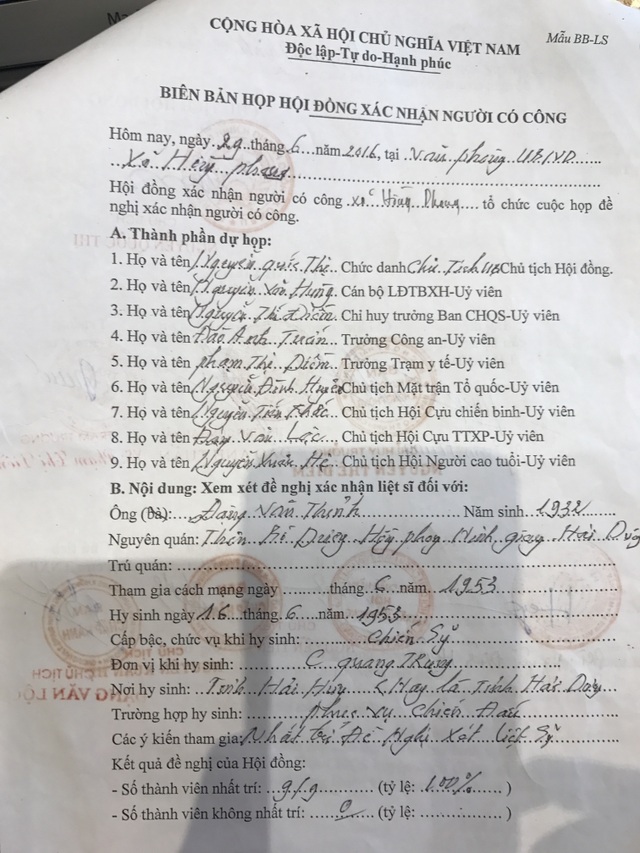 CỘNG HÒA XÃ HỘI CHỦ NGHĨA VIỆT NAM
Mẫu BB-LS
Độc lập-Tự do-Hạnh phúc
BIÊN BẢN HỌP HỘI ĐỒNG XÁC NHẬN NGƯỜI CÓ CÔNG
Hôm nay, ngày 29 tháng 6 năm 2016, tại văn phòng UBND
Xã Hồng phong
Hội đồng xác nhận người có công xã Hồng Phong tổ chức cuộc họp để
nghị xác nhận người có công.
A. Thành phần dự họp:
1. Họ và tên Nguyễn quốc Thị Chức danh Chủ Tịch UB Chủ tịch Hội đồng.
2. Họ và tên Nguyễn Văn Hưng Cán bộ LĐTBXH-Uỷ viên
3. Họ và tên Nguyễn Thế Chỉ huy trưởng Ban CHQS-Uỷ viên
4. Họ và tên Đào Anh Tuấn Trưởng Công an-Uỷ viên
5. Họ và tên phạm Thị Diễm Trưởng Trạm y tế-Uỷ viên
6. Họ và tên Nguyễn Đình Chủ tịch Mặt trận Tổ quốc-Uỷ viên
7. Họ và tên Nguyễn Tiến Chủ tịch Hội Cựu chiến binh-Uỷ viên
8. Họ và tên Đặng Văn Lộc Chủ tịch Hội Cựu TTXP-Uỷ viên
9. Họ và tên Nguyễn Xuân Hệ Chủ tịch Hội Người cao tuổi-Uỷ viên
B. Nội dung: Xem xét đề nghị xác nhận liệt sĩ đối với:
Ông (bà): Đặng Văn Thịnh Năm sinh 1932
Nguyên quán: Thôn Bồ Dương Hồng phong Ninh giang Hải Dương
Trú quán:
Tham gia cách mạng ngày tháng 6 năm 1953
Hy sinh ngày 16 tháng 6 năm 1953
Cấp bậc, chức vụ khi hy sinh: Chiến Sỹ
Đơn vị khi hy sinh: C quang Trung
Nơi hy sinh: Tỉnh Hải Hưng (Nay là Tỉnh Hải Dương
Trường hợp hy sinh: phục vụ Chiến Đấu
Các ý kiến tham gia: Nhất Trí Đề Nghị Xét liệt Sỹ
Kết quả đề nghị của Hội đồng:
- Số thành viên nhất trí: 9/9 (tỷ lệ: 100% )
- Số thành viên không nhất trí: 0 (tỷ lệ: )